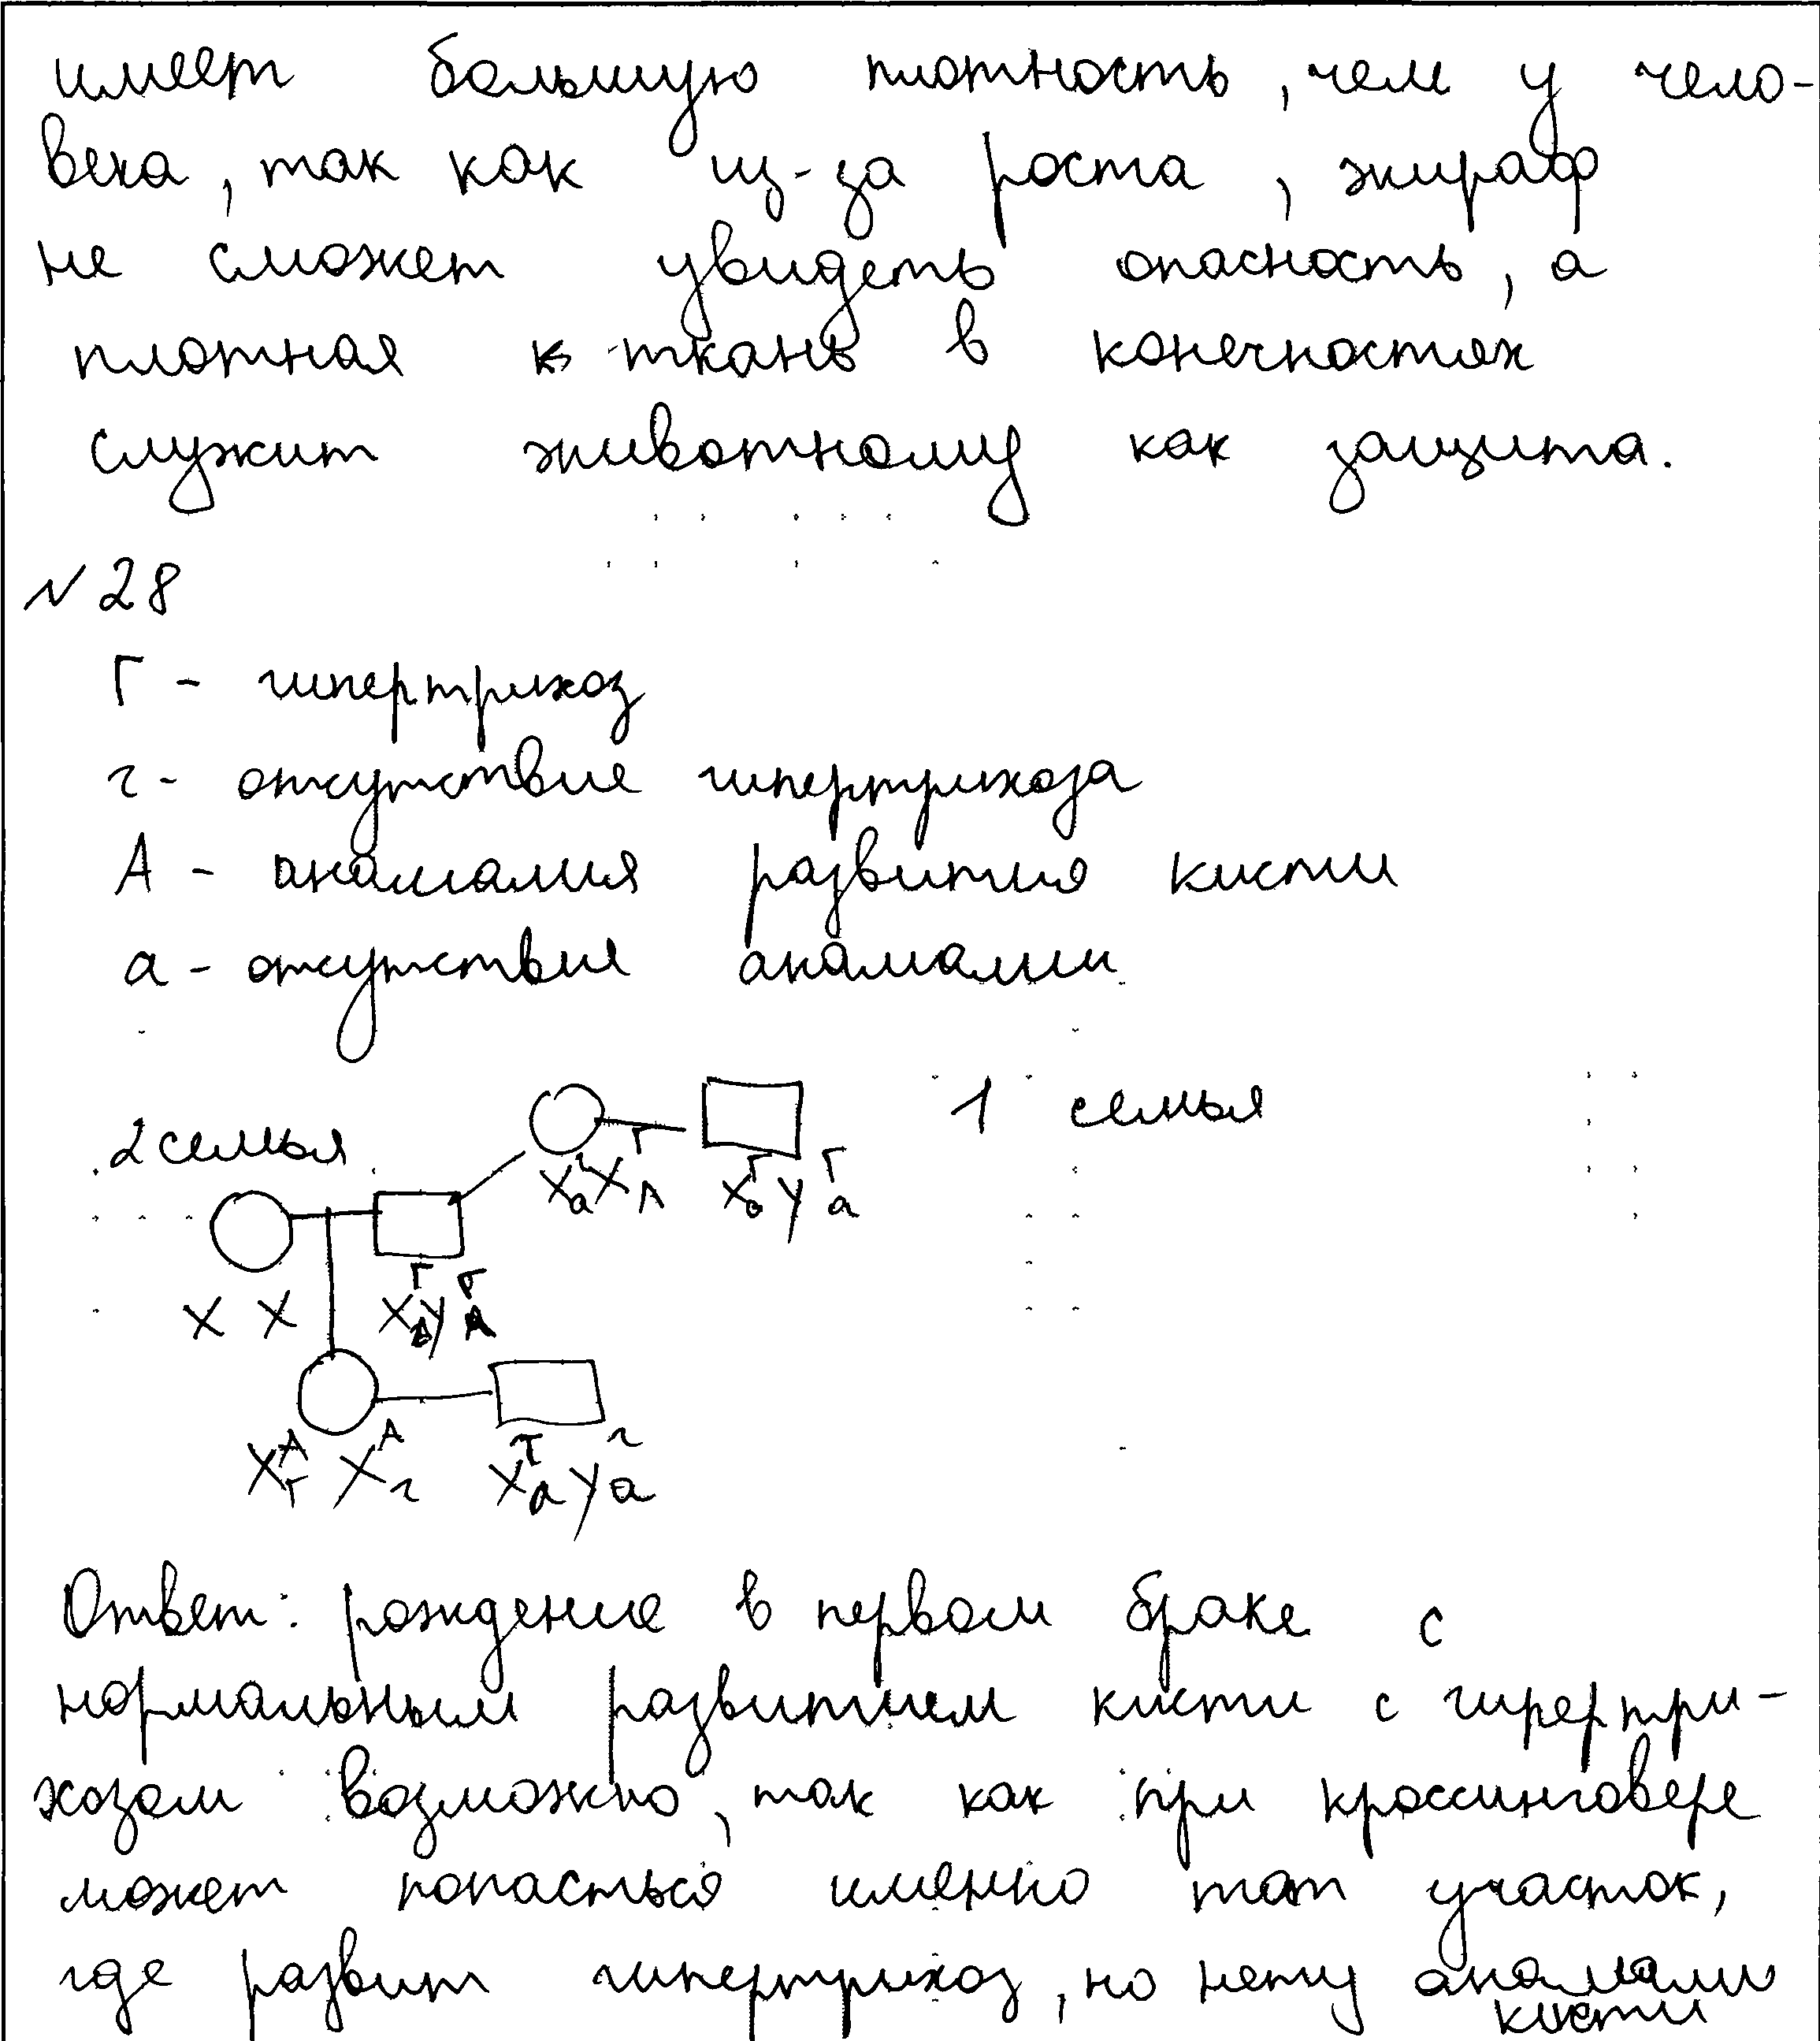 имеет большую плотность, чем у чело-
века, так как из-за роста, жираф
не сможет увидеть опасность, а
плотная к ткань в конечностях
служит животному как защита.
№ 28
Г - гипертрихоз
г - отсутствие гипертрихоза
А - анамалия развития кисти
а - отсутствие анамалии
2 семья 1 семья
Ответ: рождение в первом браке с
нормальным развитием кисти с гирертри-
хозом возможно, так как при кроссинговере
может попасться именно тот участок,
где развит гипертрихоз, но нету анамали
кисти